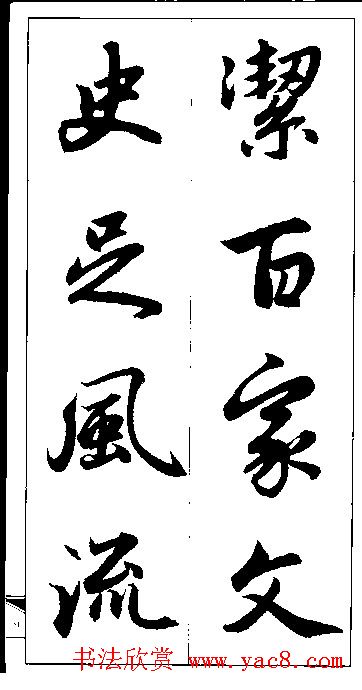 潔百家文
史足風流
书法欣赏 www.yac8.com